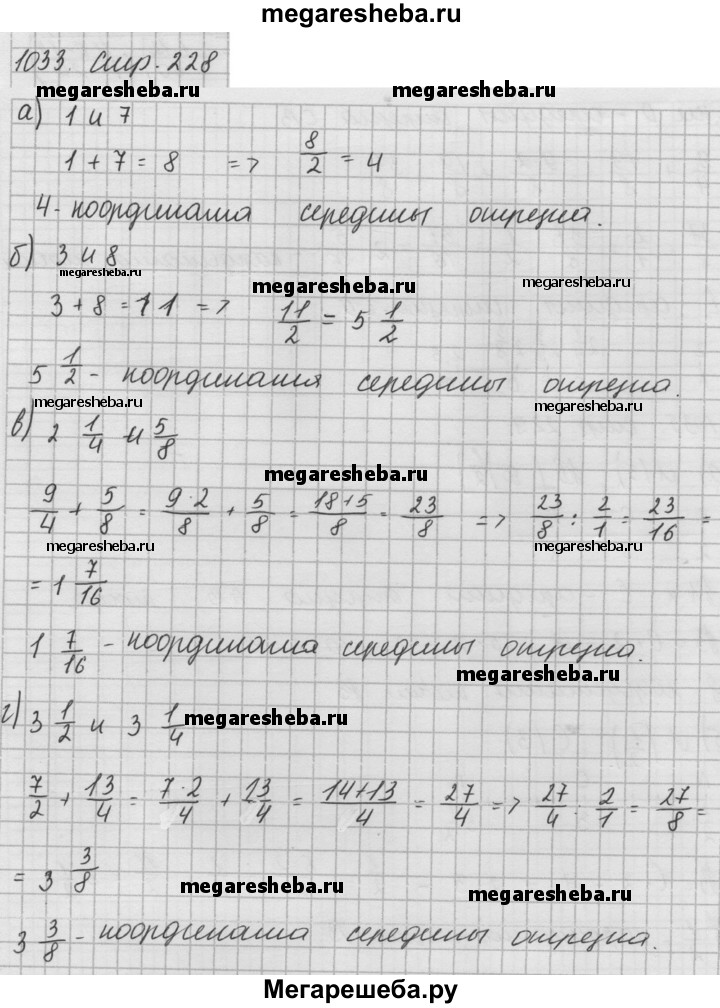 megaresheba.ru
1033. стр. 228
megaresheba.ru megaresheba.ru
а) 1 и 7
1 + 7 = 8 => 8/2 = 4
4 - координата середины отрезка.
б) 3 и 8
megaresheba.ru megaresheba.ru megaresheba.ru
3 + 8 = 11 => 11/2 = 5 1/2
5 1/2 - координатая середины отрезка.
megaresheba.ru megaresheba.ru
в) 2 1/4 и 5/8
megaresheba.ru
9/4 + 5/8 = 9·2/8 + 5/8 = 18+5/8 = 23/8 => 23/8 : 2/1 = 23/16 =
megaresheba.ru megaresheba.ru
= 1 7/16
1 7/16 - координата середины отрезка.
megaresheba.ru
г) 3 1/2 и 3 1/4
megaresheba.ru
7/2 + 13/4 = 7·2/4 + 13/4 = 14+13/4 = 27/4 => 27/4 : 2/1 = 27/8 =
= 3 3/8
megaresheba.ru megaresheba.ru
3 3/8 - координата середины отрезка.
Мегарешеба.ру